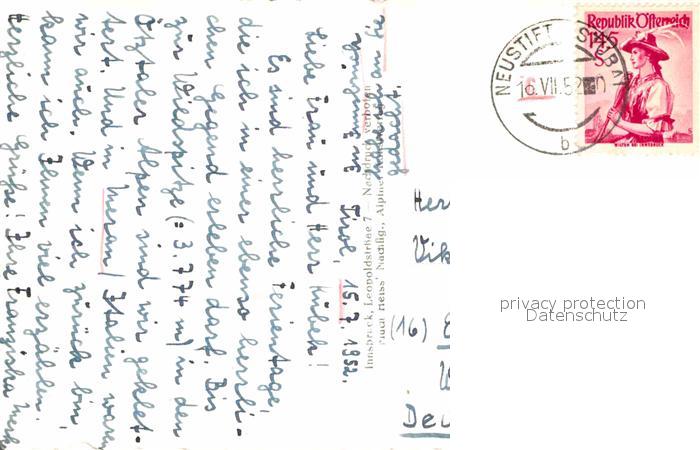 gedacht.
Neustift im Tirol, 15.7.1952.
Liebe Frau und Herr Hübel!
Es sind herrliche Ferientage,
die ich in einer ebenso herrli-
chen Gegend erleben darf. Bis
zur Wildspitze (= 3.774 m) in den
Ötztaler Alpen sind wir geklet-
tert. Und in Meran / Italien waren
wir auch. Wenn ich zurück bin,
kann ich Ihnen viel erzählen.
Herzliche Grüße! Ihre Franziska
Innsbruck, Leopoldstraße 7 — Nachdruck verboten
NEUSTIFT STUBAI
16.VII.52
b
Republik Österreich
1.45
S
WILTEN BEI INNSBRUCK
Her
Vik
(16)
Deu
privacy protection
Datenschutz